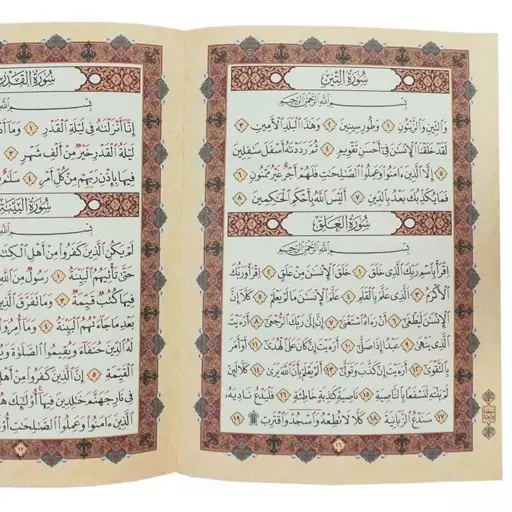 سُورَةُ التِّينِ
بِسْمِ اللَّهِ الرَّحْمَٰنِ الرَّحِيمِ
وَالتِّينِ وَالزَّيْتُونِ ١ وَطُورِ سِينِينَ ٢ وَهَٰذَا الْبَلَدِ الْأَمِينِ ٣
لَقَدْ خَلَقْنَا الْإِنْسَانَ فِي أَحْسَنِ تَقْوِيمٍ ٤ ثُمَّ رَدَدْنَاهُ أَسْفَلَ سَافِلِينَ
٥ إِلَّا الَّذِينَ آمَنُوا وَعَمِلُوا الصَّالِحَاتِ فَلَهُمْ أَجْرٌ غَيْرُ مَمْنُونٍ ٦
فَمَا يُكَذِّبُكَ بَعْدُ بِالدِّينِ ٧ أَلَيْسَ اللَّهُ بِأَحْكَمِ الْحَاكِمِينَ ٨
سُورَةُ الْعَلَقِ
بِسْمِ اللَّهِ الرَّحْمَٰنِ الرَّحِيمِ
اقْرَأْ بِاسْمِ رَبِّكَ الَّذِي خَلَقَ ١ خَلَقَ الْإِنْسَانَ مِنْ عَلَقٍ ٢ اقْرَأْ وَرَبُّكَ
الْأَكْرَمُ ٣ الَّذِي عَلَّمَ بِالْقَلَمِ ٤ عَلَّمَ الْإِنْسَانَ مَا لَمْ يَعْلَمْ ٥ كَلَّا إِنَّ
الْإِنْسَانَ لَيَطْغَىٰ ٦ أَنْ رَآهُ اسْتَغْنَىٰ ٧ إِنَّ إِلَىٰ رَبِّكَ الرُّجْعَىٰ ٨ أَرَأَيْتَ
الَّذِي يَنْهَىٰ ٩ عَبْدًا إِذَا صَلَّىٰ ١٠ أَرَأَيْتَ إِنْ كَانَ عَلَى الْهُدَىٰ ١١ أَوْ أَمَرَ
بِالتَّقْوَىٰ ١٢ أَرَأَيْتَ إِنْ كَذَّبَ وَتَوَلَّىٰ ١٣ أَلَمْ يَعْلَمْ بِأَنَّ اللَّهَ يَرَىٰ ١٤ كَلَّا لَئِنْ
لَمْ يَنْتَهِ لَنَسْفَعًا بِالنَّاصِيَةِ ١٥ نَاصِيَةٍ كَاذِبَةٍ خَاطِئَةٍ ١٦ فَلْيَدْعُ نَادِيَهُ
١٧ سَنَدْعُ الزَّبَانِيَةَ ١٨ كَلَّا لَا تُطِعْهُ وَاسْجُدْ وَاقْتَرِبْ ۩ ١٩
سُورَةُ الْقَدْرِ
بِسْمِ اللَّهِ
إِنَّا أَنْزَلْنَاهُ فِي لَيْلَةِ الْقَدْرِ ١ وَمَا
لَيْلَةُ الْقَدْرِ خَيْرٌ مِنْ أَلْفِ شَهْرٍ ٣
فِيهَا بِإِذْنِ رَبِّهِمْ مِنْ كُلِّ أَمْرٍ ٤ سَلَامٌ
سُورَةُ الْبَيِّنَةِ
بِسْمِ اللَّهِ
لَمْ يَكُنِ الَّذِينَ كَفَرُوا مِنْ أَهْلِ
حَتَّىٰ تَأْتِيَهُمُ الْبَيِّنَةُ ١ رَسُولٌ مِنَ اللَّهِ
فِيهَا كُتُبٌ قَيِّمَةٌ ٣ وَمَا تَفَرَّقَ الَّذِينَ
بَعْدِ مَا جَاءَتْهُمُ الْبَيِّنَةُ ٤ وَمَا أُمِرُوا
لَهُ الدِّينَ حُنَفَاءَ وَيُقِيمُوا الصَّلَاةَ
الْقَيِّمَةِ ٥ إِنَّ الَّذِينَ كَفَرُوا مِنْ أَهْلِ
فِي نَارِ جَهَنَّمَ خَالِدِينَ فِيهَا أُولَٰئِكَ هُمْ
الَّذِينَ آمَنُوا وَعَمِلُوا الصَّالِحَاتِ